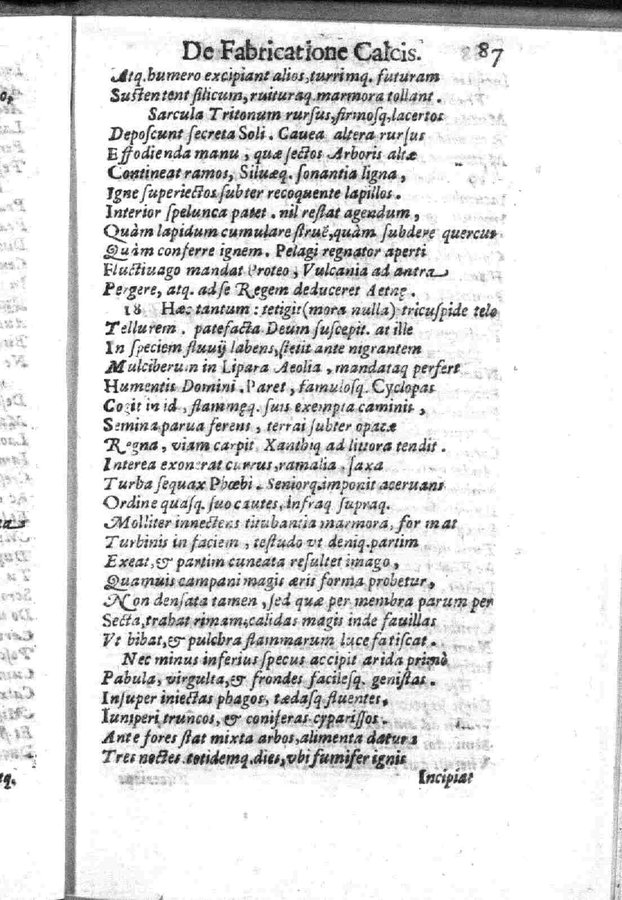 De Fabricatione Calcis. 87
Atq. humero excipiant alios, turrimq. futuram
Sustentent silicum, ruituraq. marmora tollant.
Sarcula Tritonum rursus, firmosq, lacertos
Deposcunt secreta Soli. Cauea altera rursus
Effodienda manu, quæ sectos Arboris altæ
Contineat ramos, Siluæq. sonantia ligna,
Igne superiectos subter recoquente lapillos.
Interior spelunca patet. nil restat agendum,
Quàm lapidum cumulare struẽ, quàm subdere quercus
Quàm conferre ignem. Pelagi regnator aperti
Fluctiuago mandat Proteo, Vulcania ad antra
Pergere, atq. ad se Regem deduceret Aetnę.
18 Hæc tantum: tetigit (mora nulla) tricuspide telo
Tellurem. patefacta Deum suscepit. at ille
In speciem fluuij labens, stetit ante nigrantem
Mulciberum in Lipara Aeolia, mandataq perfert
Humentis Domini. Paret, famulosq. Cyclopas
Cogit in id, flammęq. suis exempta caminis,
Semina parua ferens, terrai subter opacæ
Regna, viam carpit, Xanthiq ad littora tendit.
Interea exonerat currus, ramalia, saxa
Turba sequax Phœbi. Seniorq. imponit aceruans
Ordine quasq. suo cautes, infraq supraq.
Molliter innectens titubantia marmora, format
Turbinis in faciem, testudo vt deniq. partim
Exeat, & partim cuneata resultet imago,
Quamuis campani magis æris forma probetur,
Non densata tamen, sed quæ per membra parum per
Secta, trahat rimam, calidas magis inde fauillas
Vt bibat, & pulchra flammarum luce fatiscat.
Nec minus inferius specus accipit arida primò
Pabula, virgulta, & frondes facilesq. genistas.
Insuper iniectas phagos, tædasq fluentes,
Iuniperi truncos, & coniferas cyparissos.
Ante fores stat mixta arbos, alimenta datura
Tres noctes, totidemq. dies, vbi fumifer ignis
Incipiat